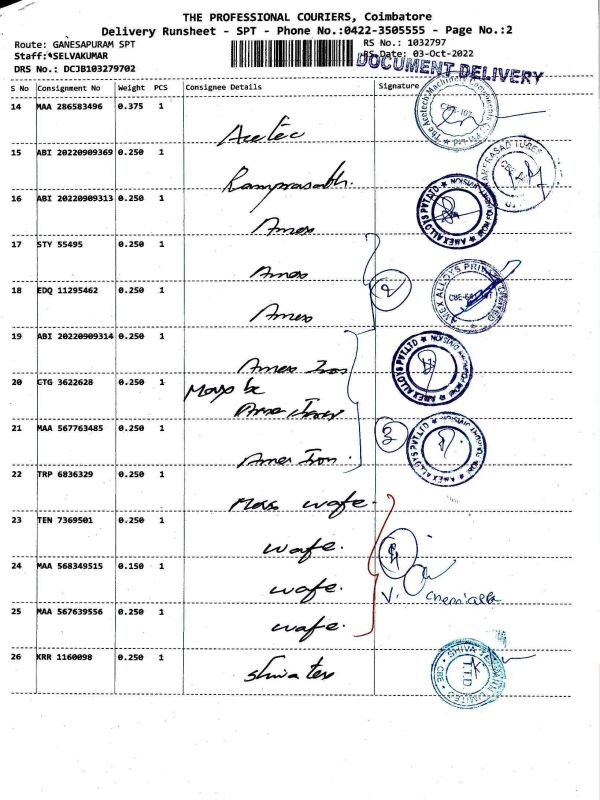 THE PROFESSIONAL COURIERS, Coimbatore
Delivery Runsheet - SPT - Phone No.:0422-3505555 - Page No.:2
Route: GANESAPURAM SPT RS No.: 1032797
Staff: SELVAKUMAR RS Date: 03-Oct-2022
DOCUMENT DELIVERY
DRS No.: DCJB103279702
S No Consignment No Weight PCS Consignee Details Signature
14 MAA 286583496 0.375 1
Acetec
15 ABI 20220909369 0.250 1
Ramprasath.
16 ABI 20220909313 0.250 1
Amex
17 STY 55495 0.250 1
Amex
18 EDQ 11295462 0.250 1
2
Amex
19 ABI 20220909314 0.250 1
Amex Iron
20 CTG 3622628 0.250 1
21 MAA 567763485 0.250 1
3
Amex Iron.
22 TRP 6836329 0.250 1
wafe.
23 TEN 7369501 0.250 1
wafe.
24 MAA 568349515 0.150 1
wafe.
25 MAA 567639556 0.250 1
wafe.
26 KRR 1160098 0.250 1
Shiva tex
AMEX ALLOYS PVT LTD